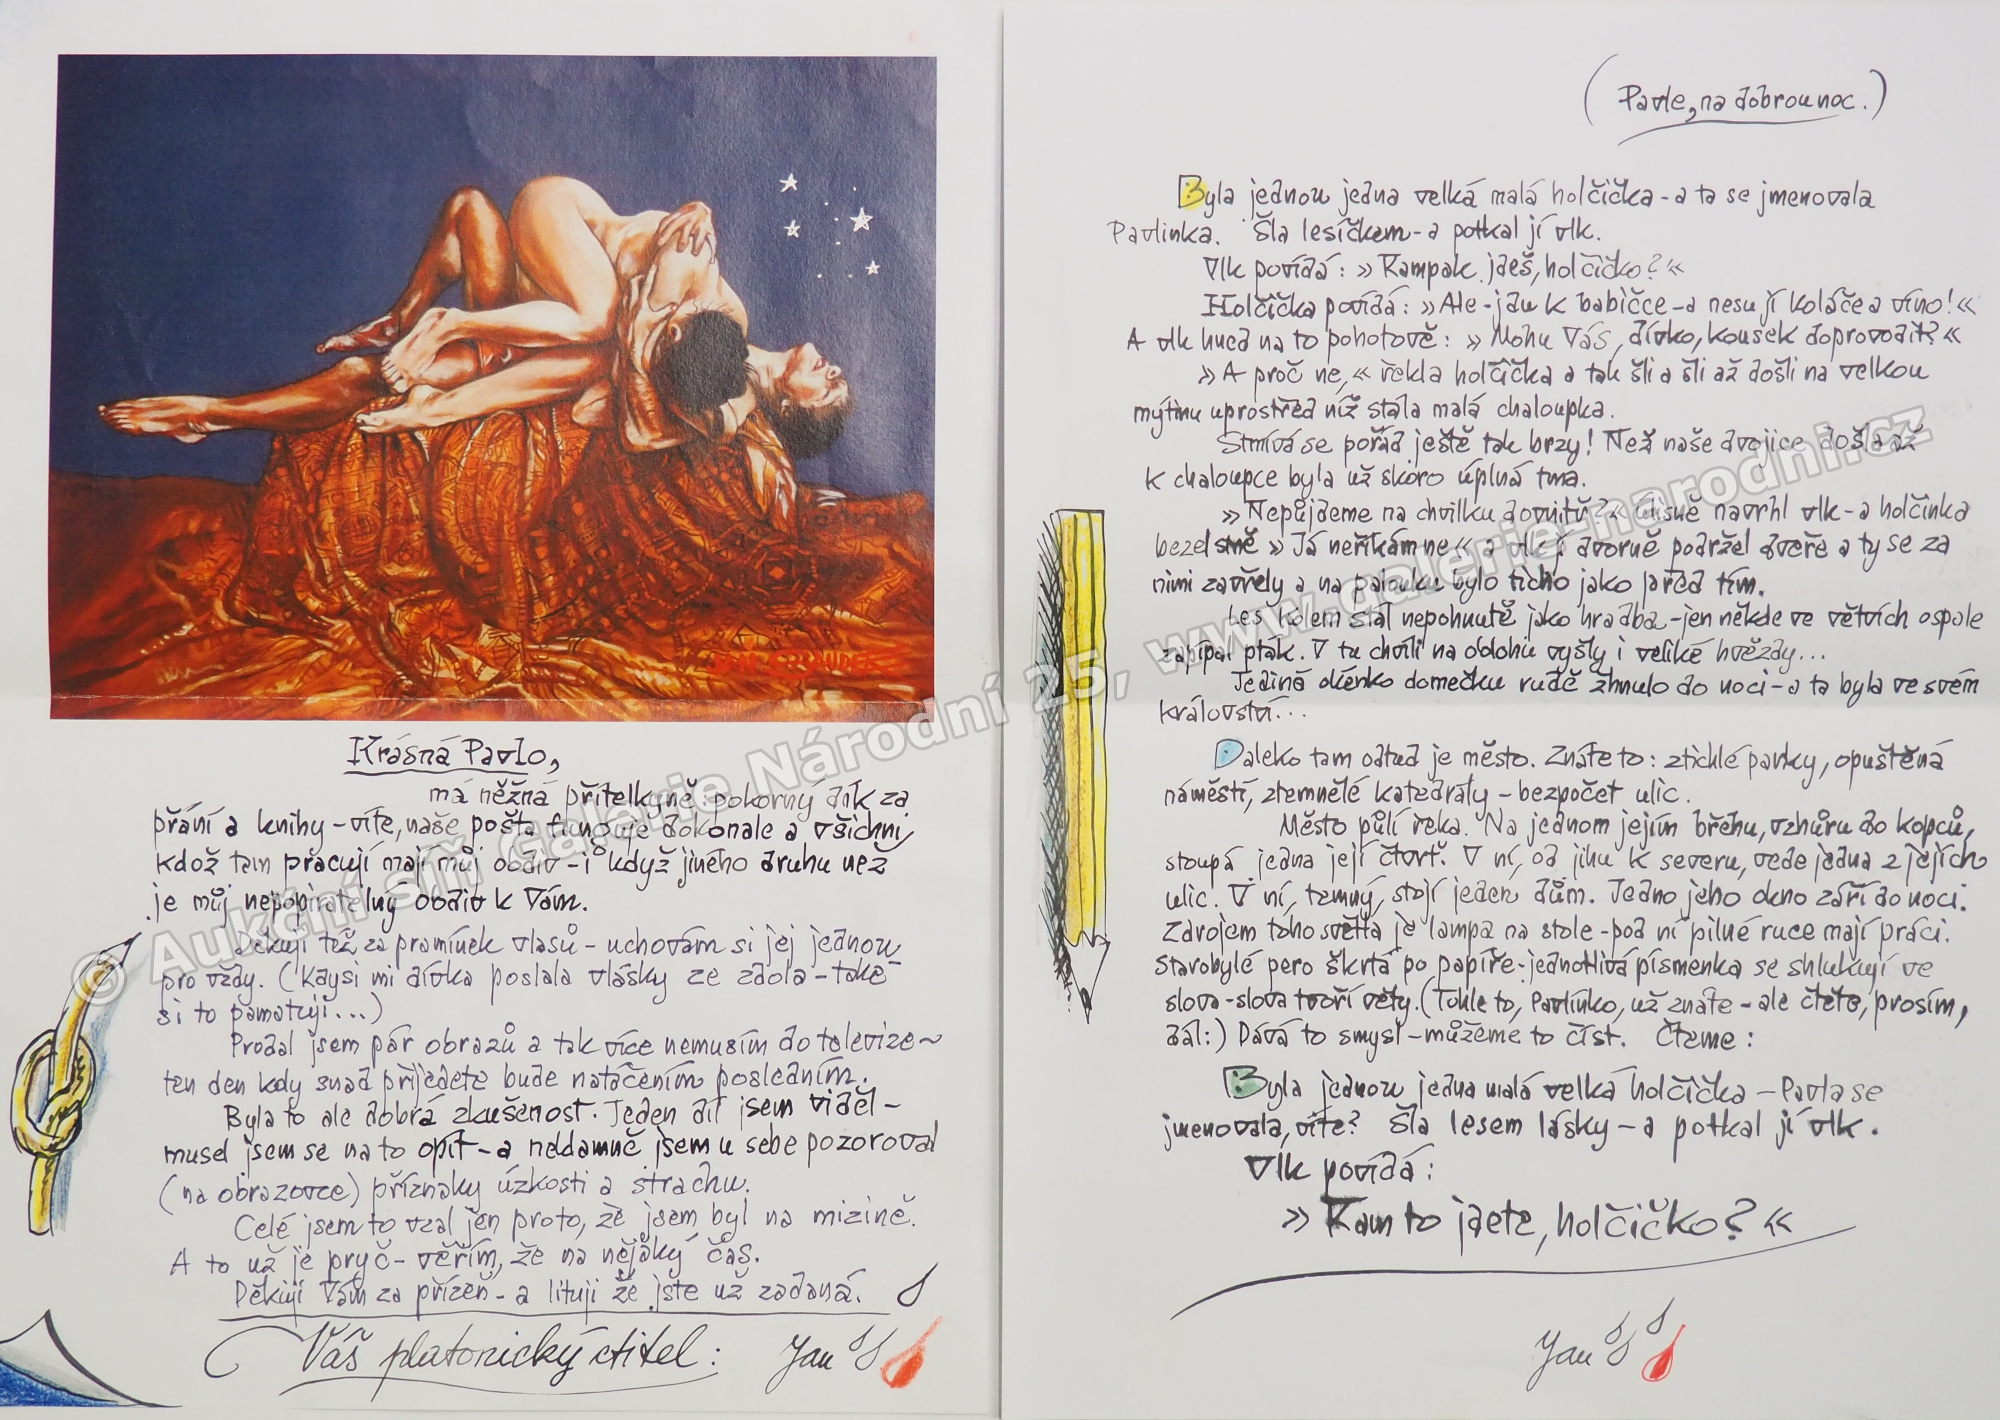 Krásná Pavlo,
má něžná přítelkyně pokorný dík za
přání a knihy – víte, naše pošta funguje dokonale a všichni
kdož tam pracují mají můj obdiv – i když jiného druhu než
je můj nepopiratelný obdiv k Vám.
Děkuji též za pramínek vlasů – uchovám si jej jednou
pro vždy. (Kdysi mi dívka poslala vlásky ze zdola – také
si to pamatuji...)
Prodal jsem pár obrazů a tak více nemusím do televize ~
ten den kdy snad přijedete bude natáčením posledním.
Byla to ale dobrá zkušenost. Jeden díl jsem viděl –
musel jsem se na to opít – a nedávně jsem u sebe pozoroval
(na obrazovce) příznaky úzkosti a strachu.
Celé jsem to vzal jen proto, že jsem byl na mizině.
A to už je pryč – věřím, že na nějaký čas.
Děkuji Vám za přízeň – a lituji že jste už zadaná.
Váš platonický ctitel: Jan
(Pavle, na dobrou noc.)
Byla jednou jedna velká malá holčička – a ta se jmenovala
Pavlinka. Šla lesíčkem – a potkal jí vlk.
Vlk povídá: »Kampak jdeš, holčičko?«
Holčička povídá: »Ale – jdu k babičce – a nesu jí koláče a víno!«
A vlk hned na to pohotově: »Mohu Vás, dívko, kousek doprovodit?«
»A proč ne,« řekla holčička a tak šli a šli až došli na velkou
mýtinu uprostřed níž stála malá chaloupka.
Stmívá se pořád ještě tak brzy! Než naše dvojice došla až
k chaloupce byla už skoro úplná tma.
»Nepůjdeme na chvilku dovnitř?« navrhl vlk – a holčinka
bezelstně »Já neříkám ne« a vlk jí dvorně podržel dveře a ty se za
nimi zavřely a na palouku bylo ticho jako před tím.
Les kolem stál nepohnutě jako hradba – jen někde ve větvích ospale
zapípal pták. V tu chvíli na oblohu vyšly i veliké hvězdy...
Jediné okénko domečku rudě žhnulo do noci – a ta byla ve svém
království...
Daleko tam odtud je město. Znáte to: ztichlé parky, opuštěná
náměstí, ztemnělé katedrály – bezpočet ulic.
Město půlí řeka. Na jednom jejím břehu, vzhůru do kopců,
stoupá jedna její čtvrť. V ní, od jihu k severu, vede jedna z jejích
ulic. V ní, temný, stojí jeden dům. Jedno jeho okno září do noci.
Zdrojem toho světla je lampa na stole – pod ní pilné ruce mají práci.
Starobylé pero škrtá po papíře – jednotlivá písmenka se shlukují ve
slova – slova tvoří věty. (Tohle to, Pavlínko, už znáte – ale čtěte, prosím,
dál:) Dává to smysl – můžeme to číst. Čteme:
Byla jednou jedna malá velká holčička – Pavla se
jmenovala, víte? Šla lesem lásky – a potkal jí vlk.
Vlk povídá:
»Kam to jdete, holčičko?«
Jan
© Aukční síň Galerie Národní 25, www.galerie-narodni.cz